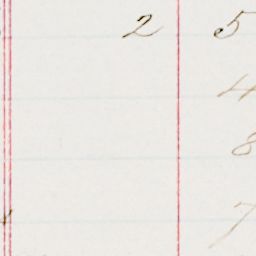 2 5
4
8
7